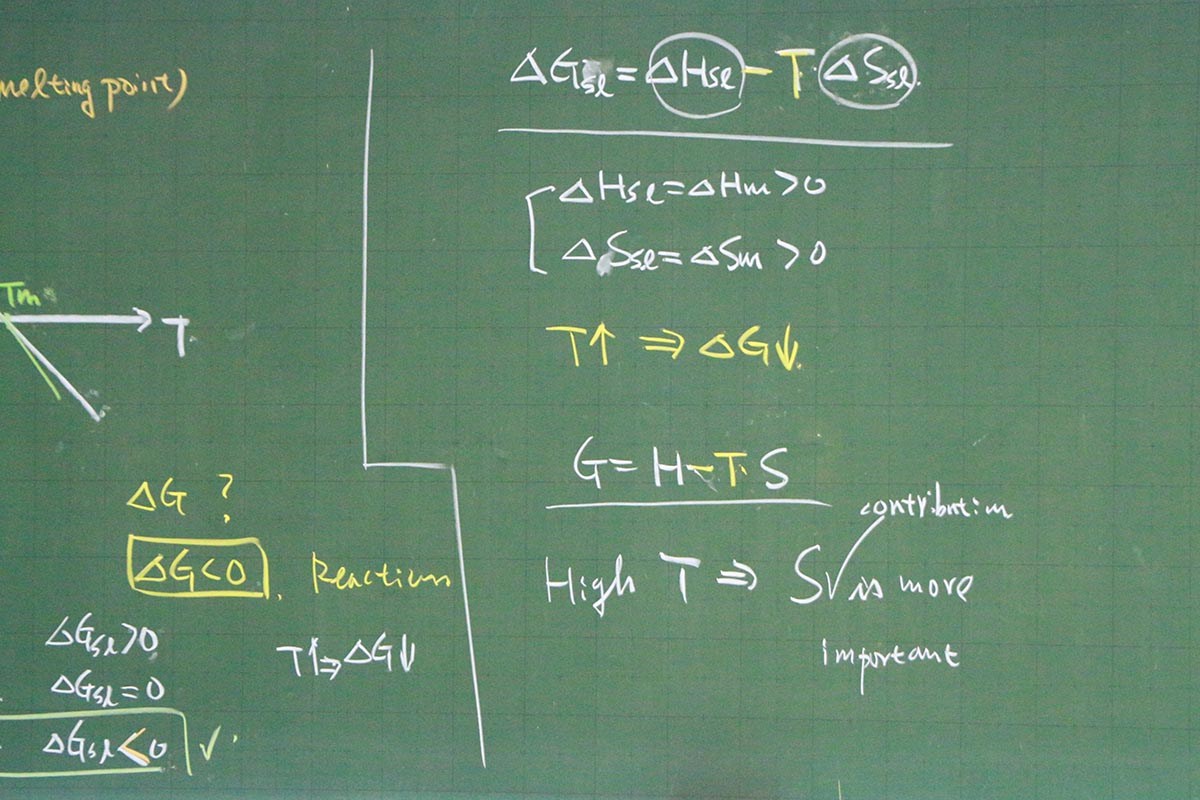 melting point)
Tm
T
ΔG ?
ΔG<0. Reactions
ΔGsl>0
ΔGsl=0
ΔGsl<0 ✓
T↑⇒ΔG↓
ΔGsl=ΔHsl-T·ΔSsl.
ΔHsl=ΔHm>0
ΔSsl=ΔSm>0
T↑ ⇒ ΔG↓
G=H-T·S
contribution
High T ⇒ S is more
important